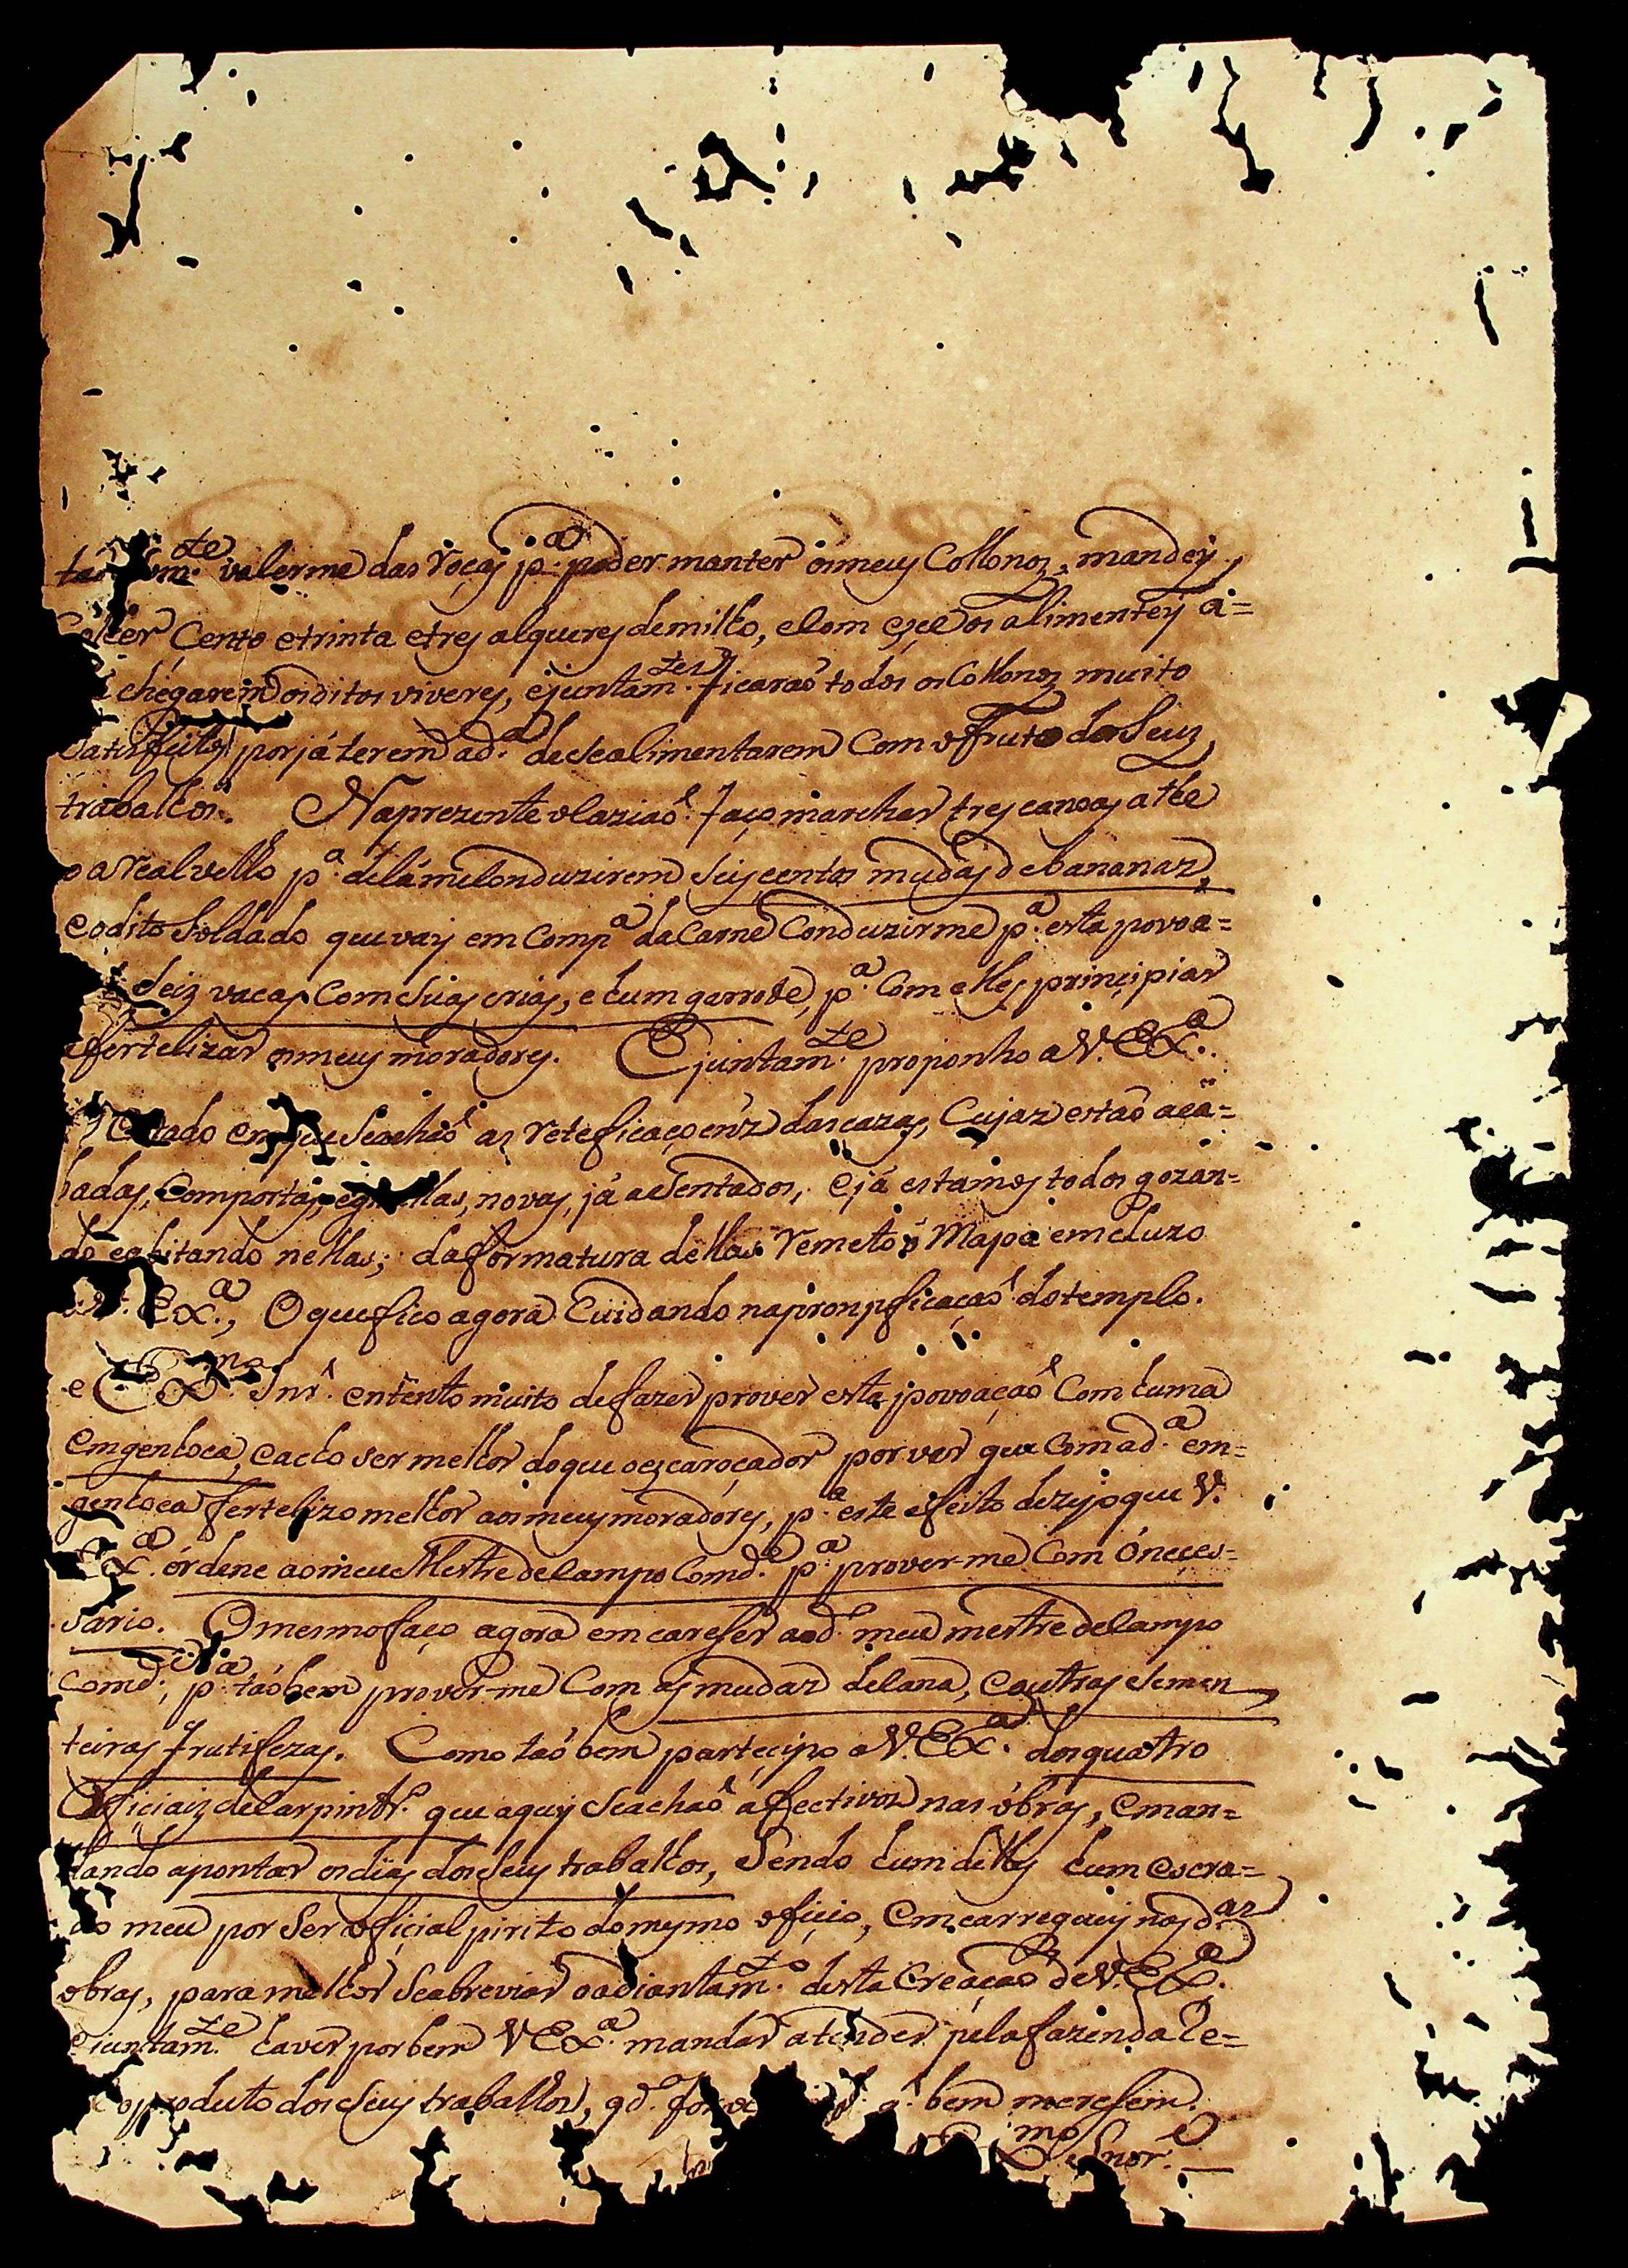 valerme das roças p.ª poder manter ôs meus Collonos, mandey
Colher Cento e trinta e tres alqueres de milho, e Com eçe os alimentey a=
chégarem os ditos viveres, e juntam.te ficaraõ todos os Collonos muito
Satisfeitos, por já terem ad.ª de Se alimentarem Com o fruto dos Seus
trabalhos. Na prezente o Caziaõ faço marchar tres canoas athe
o areal velho p.ª de lá me Conduzirem Seiscentos mudas de bananas,
e o dito Soldado que vay em Comp.ª da Carne Conduzirme p.ª esta povoa=
Seis vacas Com Suas crias, e hum garrote, p.ª Com elles prinçipiar
a fertelizar os meus moradores. E juntam.te proponho a V. Ex.ª
o estado em que Se achaõ as reteficaçoens das cazas, Cujaz estaõ aca=
badas, Com portas, e novas, já asentados, e já estamos todos gozan=
do e abitando nellas; da formatura dellas remeto o Mapa emcluzo
a V. Ex.ª, O que fico agora Cuidando na prompficaçaõ do templo.
e Ex.mo Snr. entento muito de fazer prover esta povoaçaõ Com huma
emgenhoca, e acho ser melhor do que o ezcaroçador por ver que Com a d.ª em=
genhoca fertelizo melhor aos meus moradores, p.ª este efeito dezejo que V.
Ex.ª órdene ao meu Mestre de Campo Com.de p.ª prover-me Com o neçes=
sario. O mesmo faço agora em careser ao d.º meu mestre de Campo
Com.de, p.ª taõ bem prover-me Com as mudaz de Cana, e outras Semen
teiras frutiferas. Como taõ bem parteçipo a V. Ex.ª dos quatro
Ofiçiaiz de Carpintr.º que aquy Se achaõ afectivos nas obras, e man=
dando apontar os diaz dos Seus trabalhos, Sendo hum delles hum escra=
vo meu por Ser ofiçial pirito do mesmo ofiçio, emcarreguey nas d.az
obras, para melhor Se abreviar o adiantam.to desta Creaçaõ de V. Ex.ª
e juntam.te haver por bem V Ex.ª mandar atender pela fazenda Re=
o produto dos Seus trabalhos, q.do q.e bem meresem.
Ex.mo Snor.